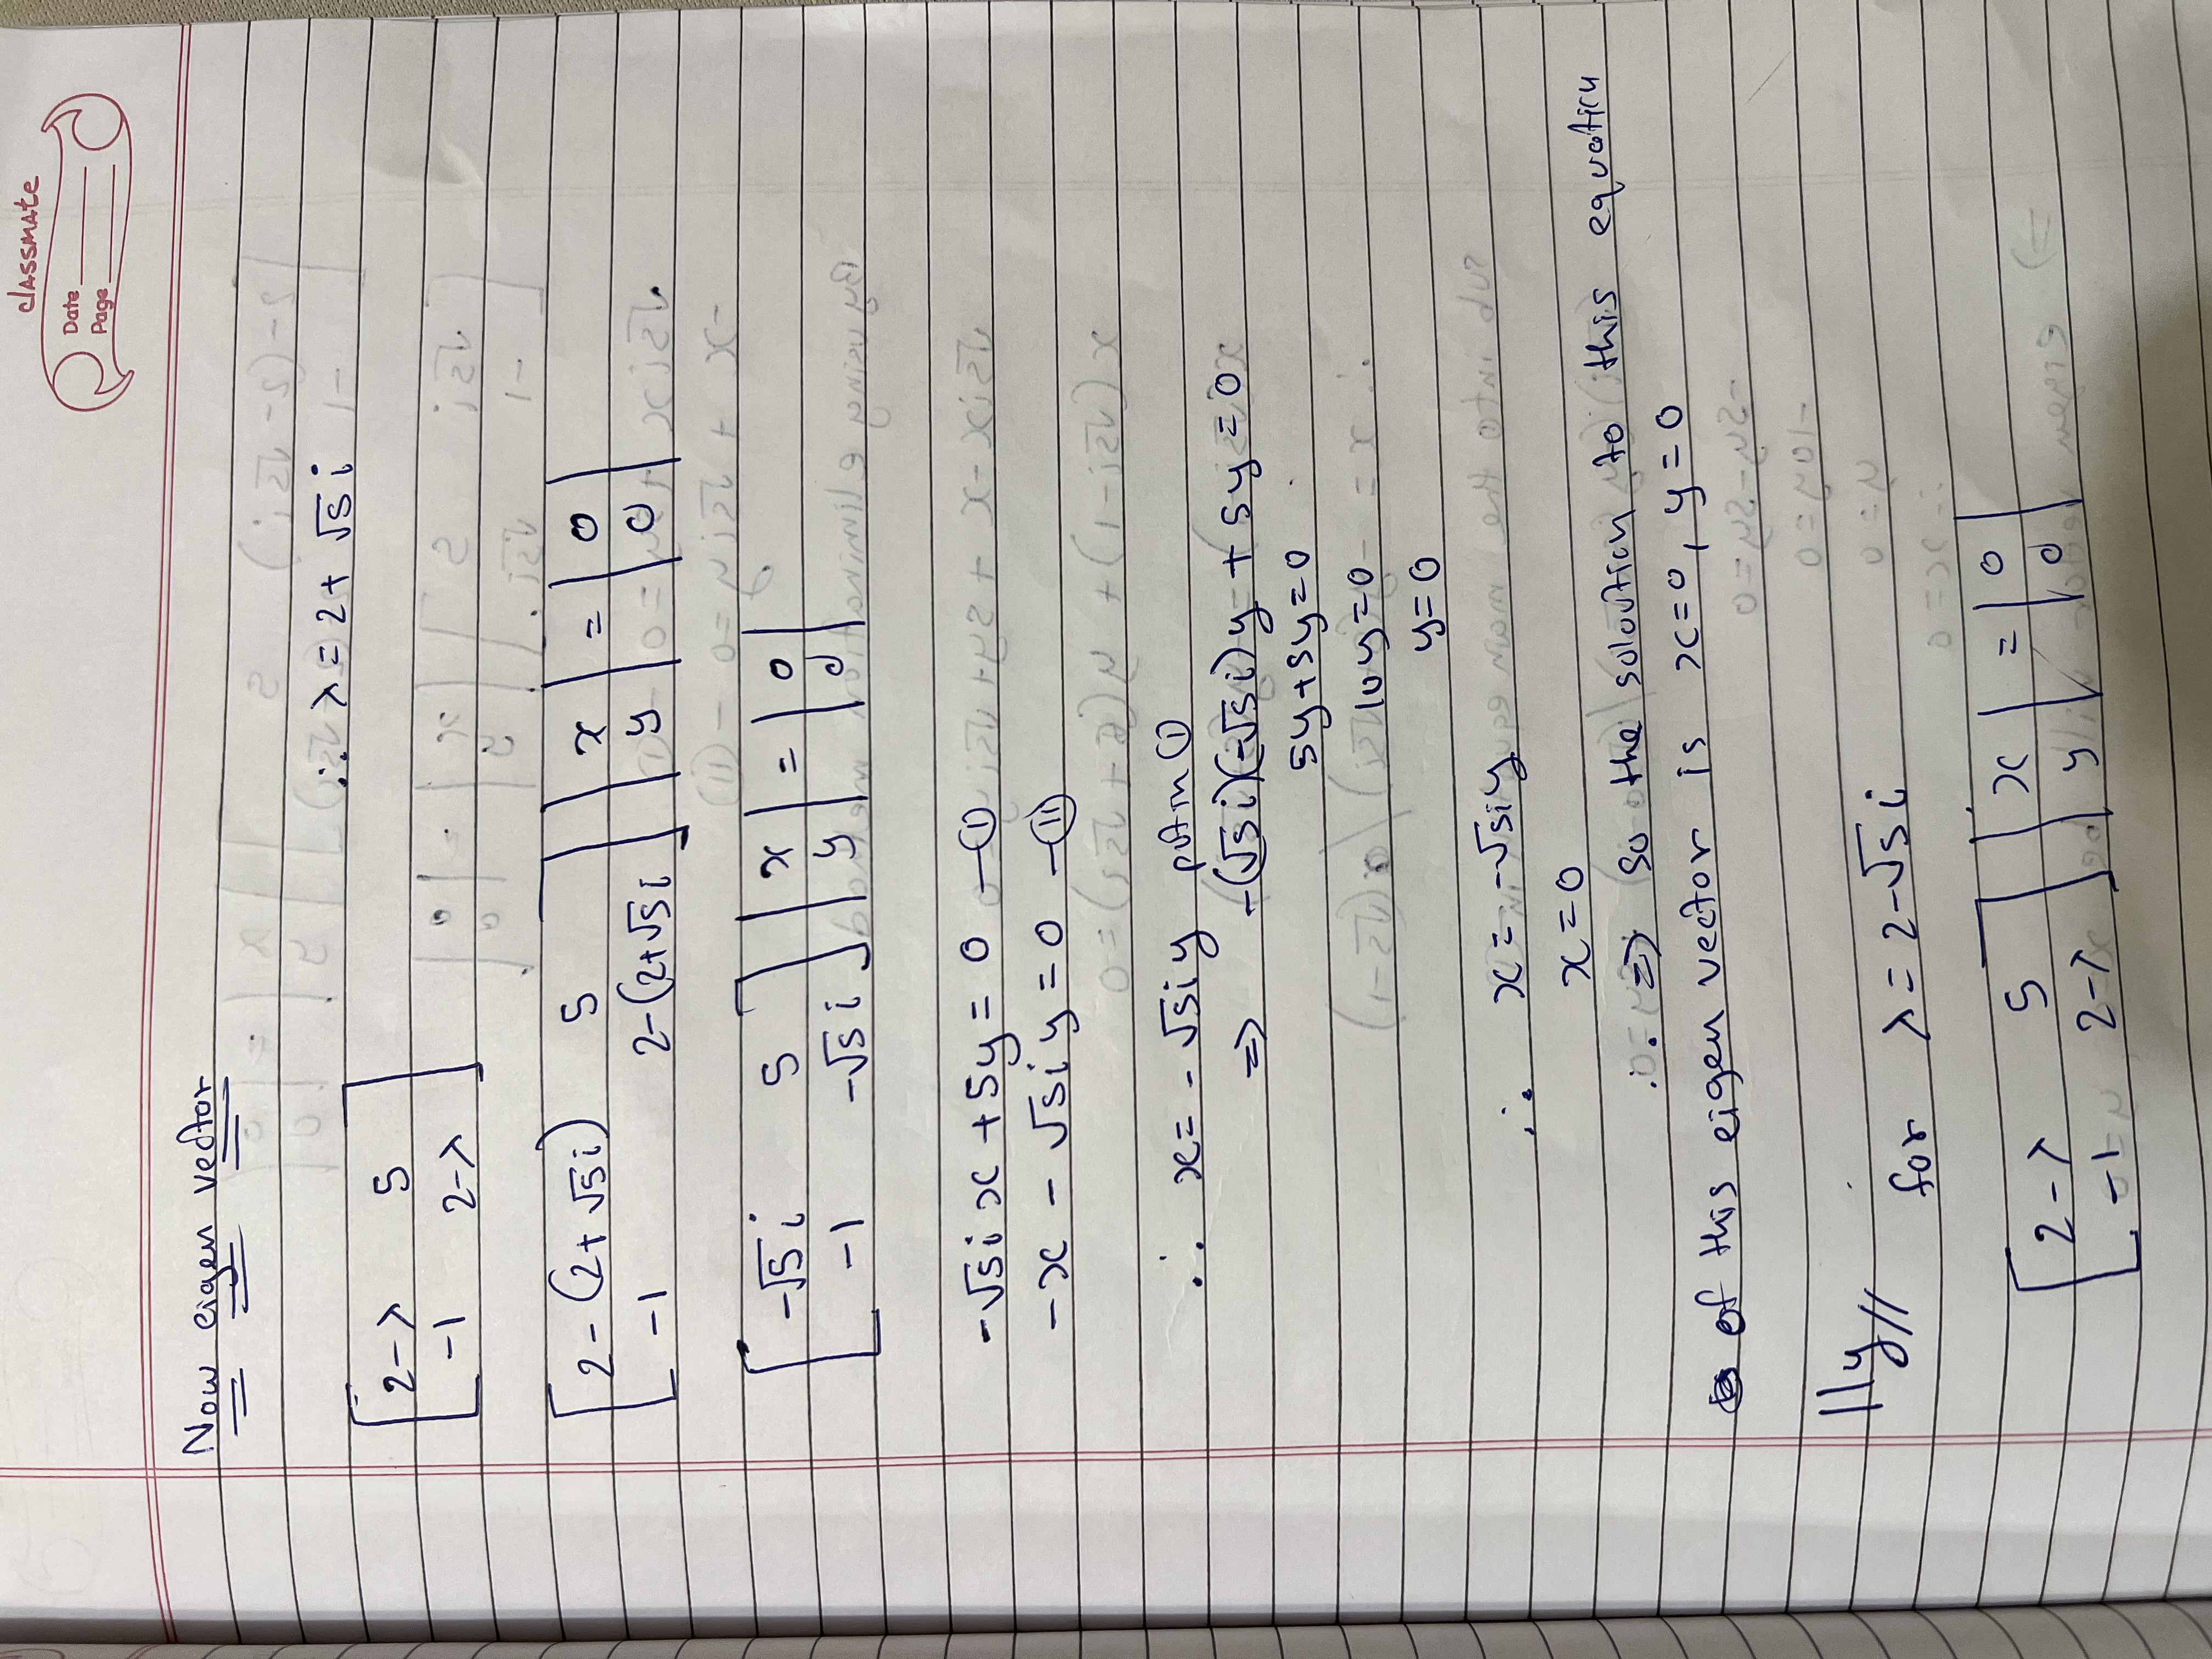 classmate
Date
Page
Now eigen vector
∴ λ = 2 + √5 i
[ 2-λ 5
-1 2-λ ]
[ 2-(2+√5i) 5
-1 2-(2+√5i ] | x y | = | 0 0 |
[ -√5i 5
-1 -√5i ] | x y | = | 0 0 |
-√5i x + 5y = 0 — (I)
-x - √5i y = 0 — (II)
∴ x = - √5i y put in (I)
⇒ -(√5i)(-√5i)y + 5y = 0
5y+5y=0
10y=0
y=0
∴ x = -√5iy
x = 0
∴ ⇒ so the soloution to this equation
of this eigen vector is x=0, y=0
||ly//
for λ = 2-√5i
[ 2-λ 5
-1 2-λ ] | x y | = | 0 0 |